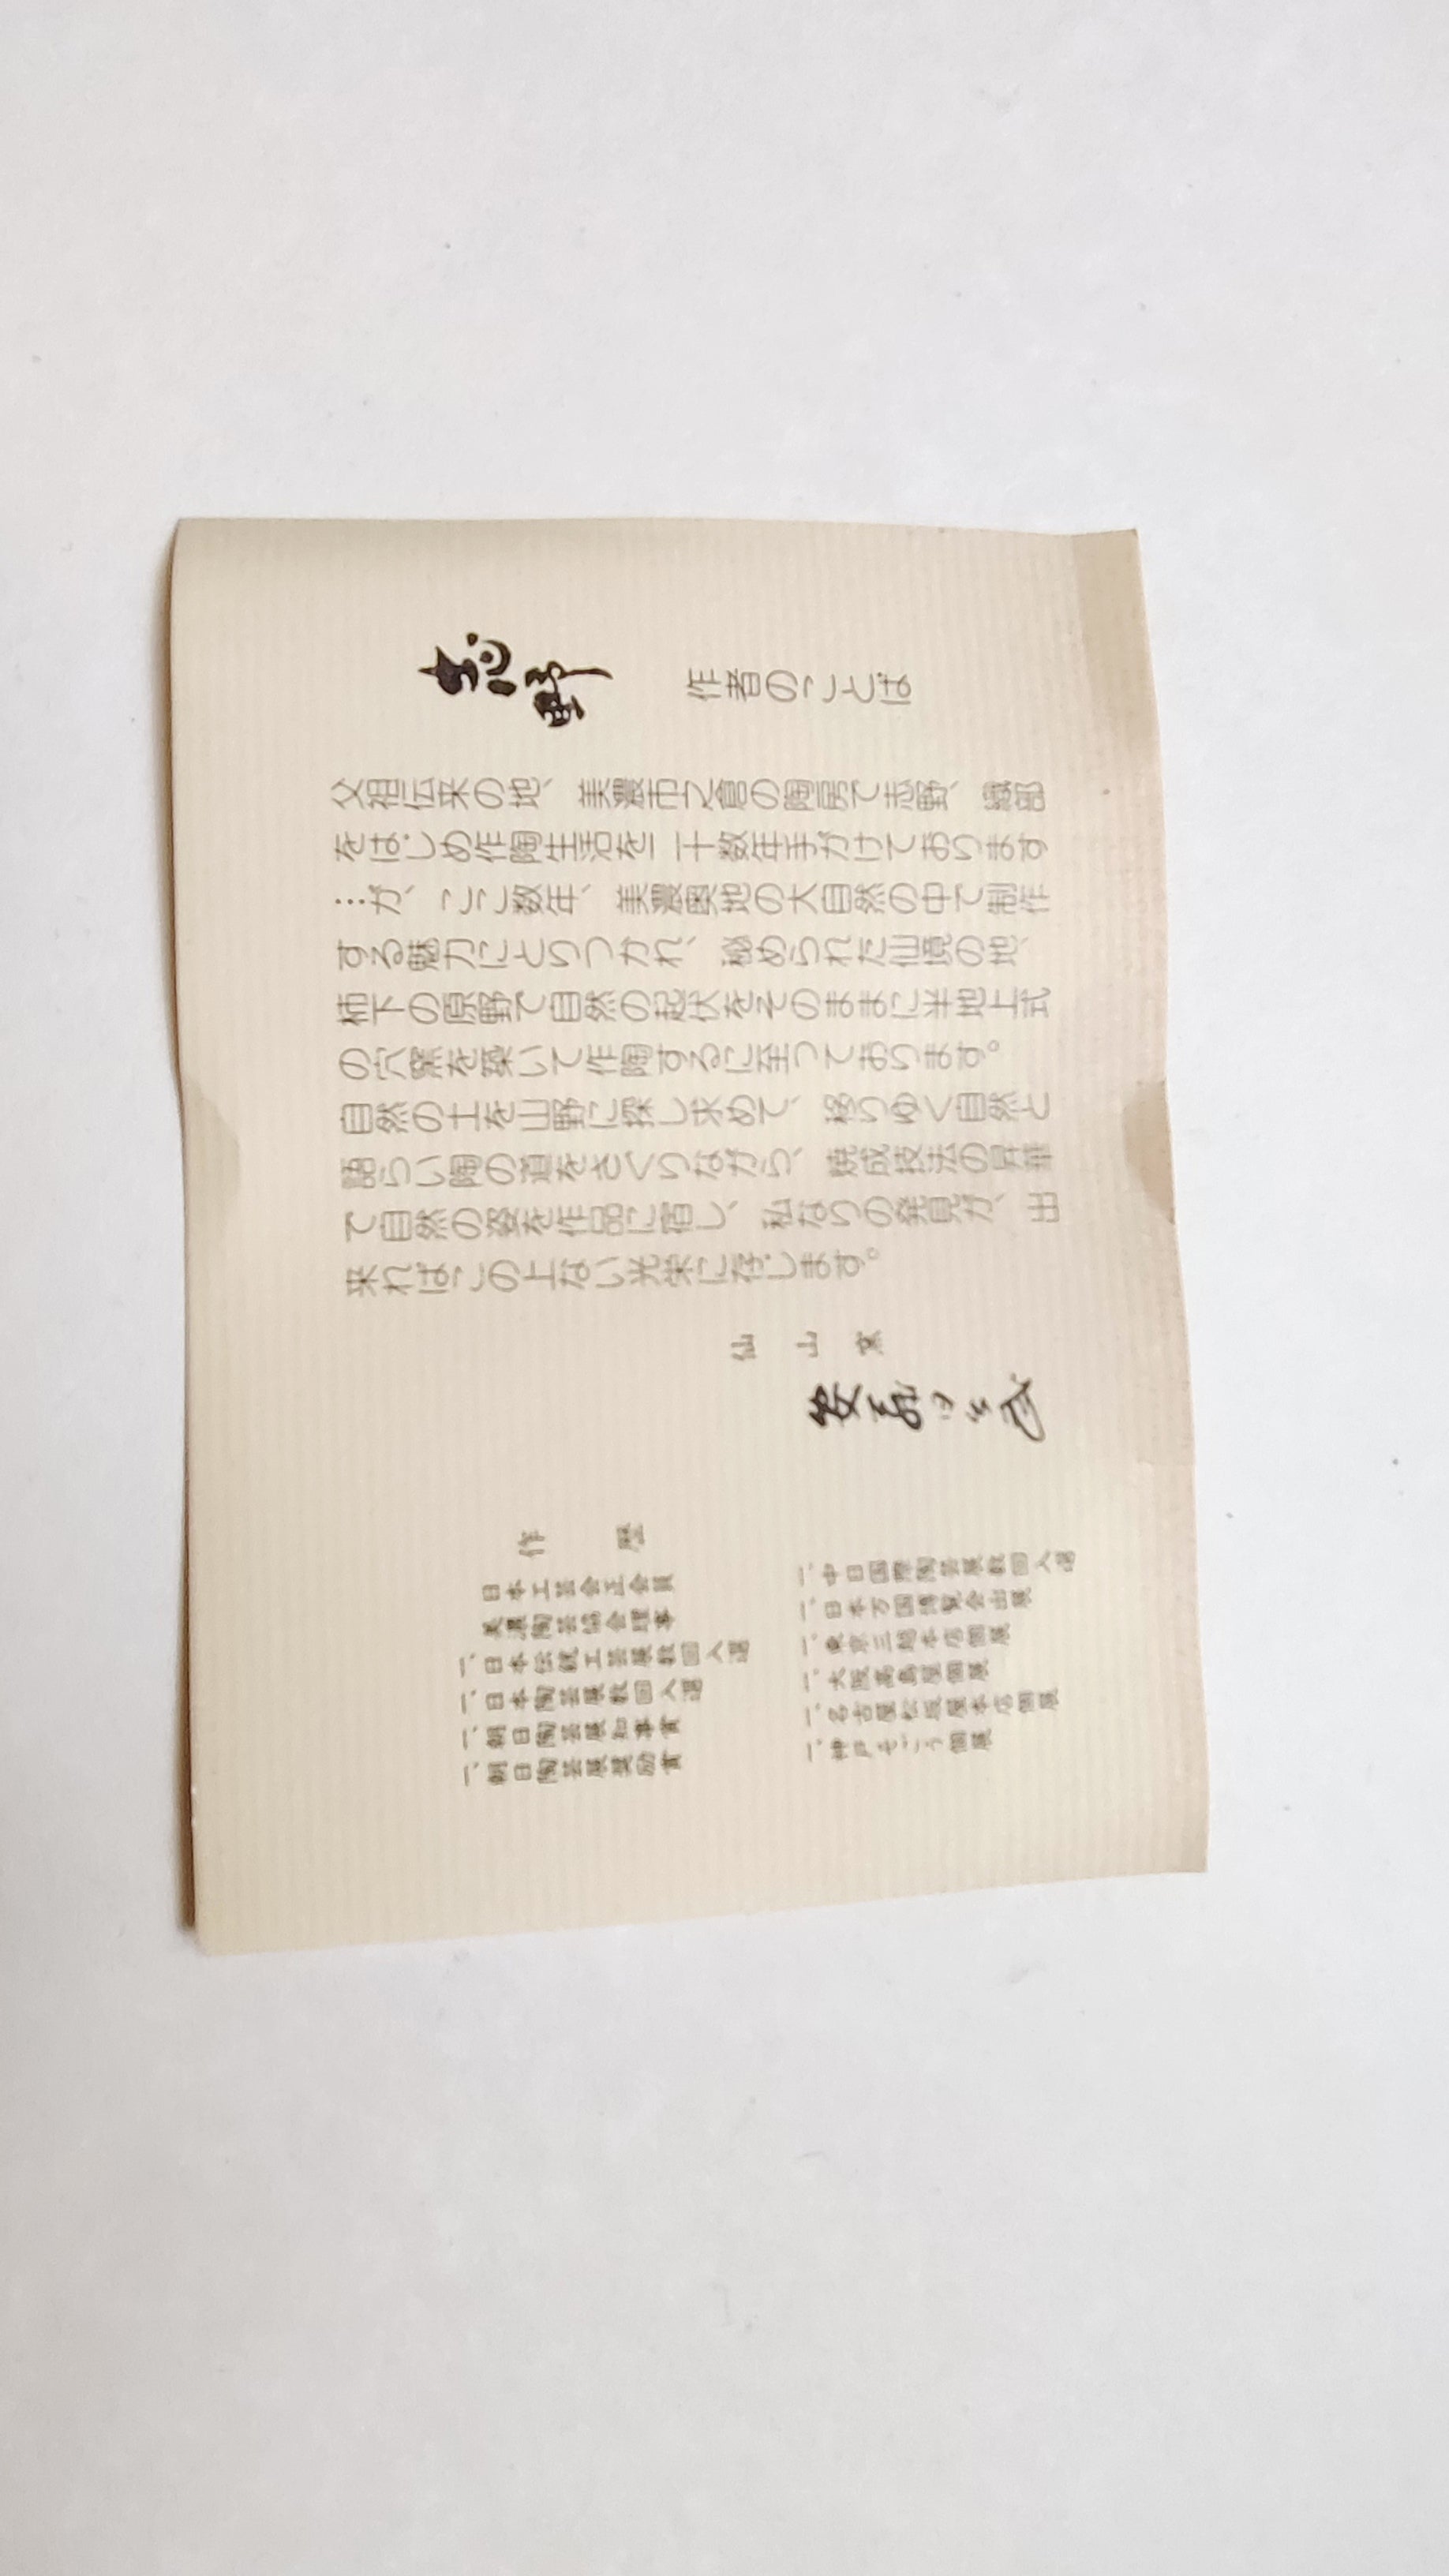 志野 作者のことば
父祖伝来の地、美濃市之倉の陶房で志野、織部
をはじめ作陶生活を二十数年手がけております
…が、ここ数年、美濃奥地の大自然の中で制作
する魅力にとりつかれ、秘められた仙境の地、
柿下の原野で自然の起伏をそのままに半地上式
の穴窯を築いて作陶するに至っております。
自然の土を山野に探し求めて、移りゆく自然と
語らい陶の道をさぐりながら、焼成技法の昇華
で自然の姿を作品に宿し、私なりの発見が、出
来ればこの上ない光栄に存じます。
仙山窯
作歴
日本工芸会正会員
美濃陶芸協会理事
一、日本伝統工芸展数回入選
一、日本陶芸展数回入選
一、朝日陶芸展知事賞
一、朝日陶芸展奨励賞
一、中日国際陶芸展数回入選
一、日本万国博覧会出展
一、東京三越本店個展
一、大阪高島屋個展
一、名古屋松坂屋本店個展
一、神戸そごう個展